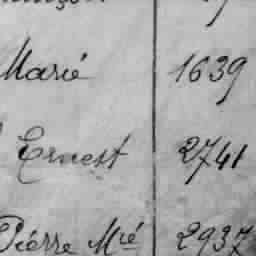 Marié 1639
Ernest 2741
Piérre Mié 2937